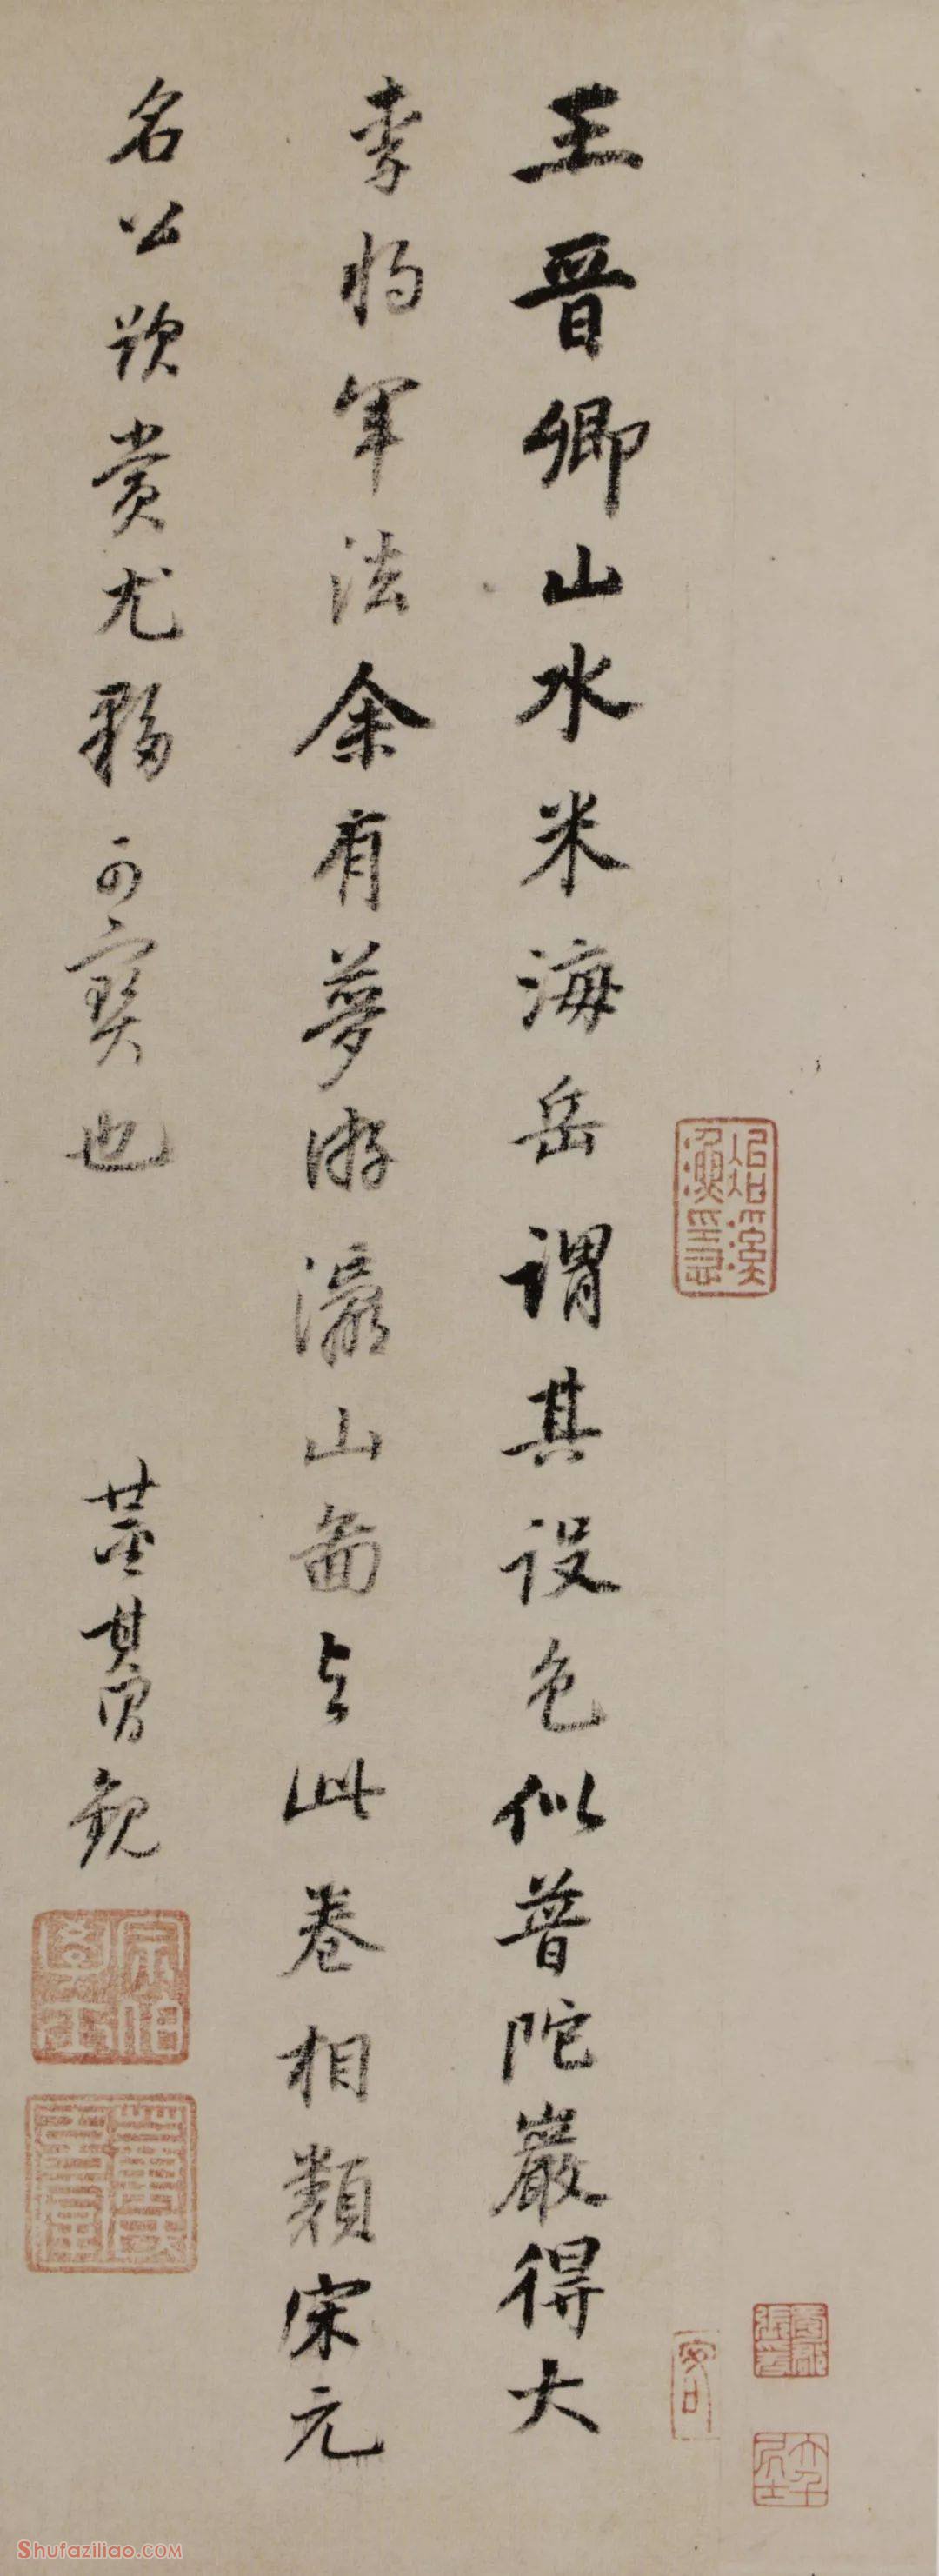 王晉卿山水米海岳謂其設色似普陀巖得大
李將軍法余有夢游瀛山圖與此卷相類宋元
名公欵賞尤夥可寶也 董其昌觀
宗伯學士
董氏玄宰
Shufaziliao.com